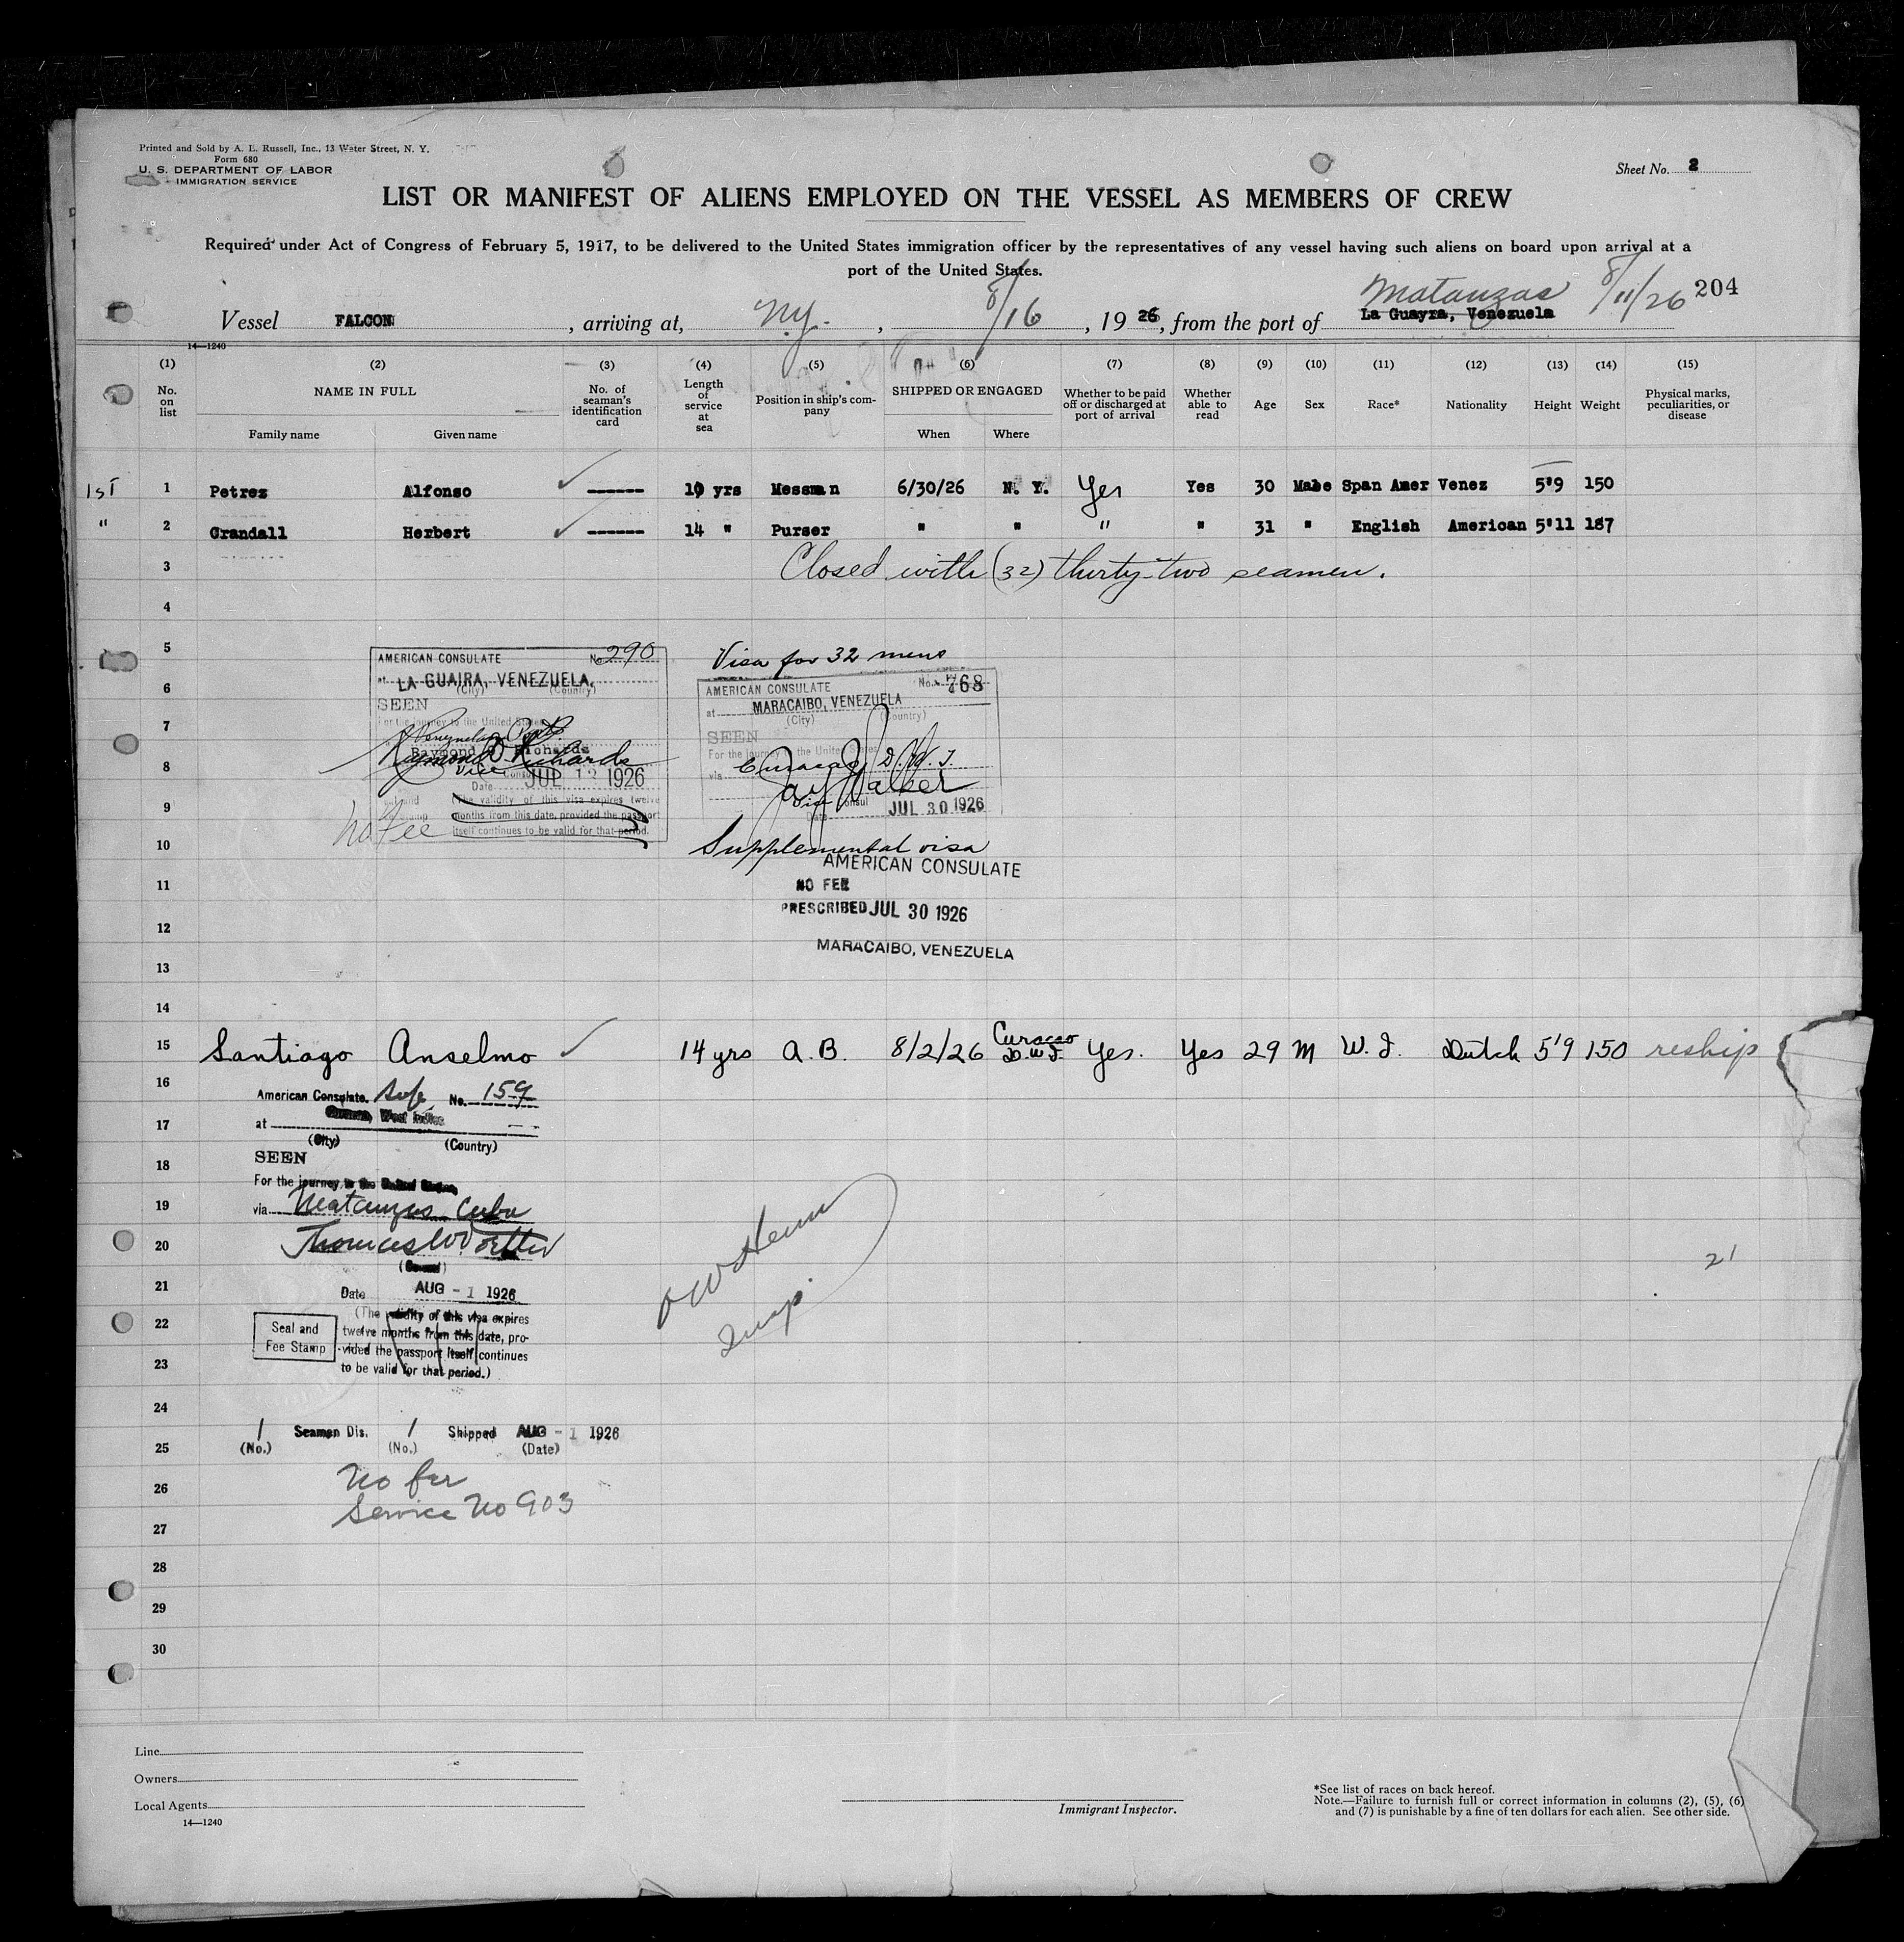 Printed and Sold by A. L. Russell, Inc., 13 Water Street, N. Y.
Form 680
U. S. DEPARTMENT OF LABOR
IMMIGRATION SERVICE
Sheet No. 2
LIST OR MANIFEST OF ALIENS EMPLOYED ON THE VESSEL AS MEMBERS OF CREW
Required under Act of Congress of February 5, 1917, to be delivered to the United States immigration officer by the representatives of any vessel having such aliens on board upon arrival at a
port of the United States.
Matanzas 8/11/26 204
Vessel FALCON, arriving at, N.Y., 8/16, 1926, from the port of La Guayra, Venezuela
14—1240
(1) (2) (3) (4) (5) (6) (7) (8) (9) (10) (11) (12) (13) (14) (15)
No. on list
NAME IN FULL
Family name Given name
No. of seaman's identification card
Length of service at sea
Position in ship's company
SHIPPED OR ENGAGED
When Where
Whether to be paid off or discharged at port of arrival
Whether able to read
Age Sex Race* Nationality Height Weight
Physical marks, peculiarities, or disease
1st 1 Petrez Alfonso ------ 10 yrs Messman 6/30/26 N. Y. Yes Yes 30 Male Span Amer Venez 5'9 150
" 2 Grandall Herbert ------ 14 " Purser " " " " 31 " English American 5'11 187
3 Closed with (32) thirty-two seamen.
4
5
6
7
8
9
10
11
12
13
14
AMERICAN CONSULATE No 290
at LA GUAIRA, VENEZUELA.
(City) (Country)
SEEN
For the journey to the United States
Venezuelan Ports
Raymond O. Richards
Raymond O. Richards
Vice Consul
Date JUL 12 1926
(The validity of this visa expires twelve
months from this date, provided the passport
itself continues to be valid for that period.
No fee
Visa for 32 mens
AMERICAN CONSULATE No. 768
at MARACAIBO, VENEZUELA
(City) (Country)
SEEN
For the journey to the United States
via Curacao, D.W.I.
Jay Walker
Vice Consul
Date JUL 30 1926
Supplemental visa
AMERICAN CONSULATE
NO FEE
PRESCRIBED JUL 30 1926
MARACAIBO, VENEZUELA
15 Santiago Anselmo 14 yrs A.B. 8/2/26 Curacao D.W.I. Yes. Yes 29 M W.I. Dutch 5'9 150 reship
16
17
18
19
20
21
22
23
24
25
26
27
28
29
30
American Consulate. No. 159
at West Indies
(City) (Country)
SEEN
For the journey to the United States,
via Matanzas Cuba
Date AUG - 1 1926
Seal and
Fee Stamp
(The validity of this visa expires
twelve months from this date, pro-
vided the passport itself continues
to be valid for that period.)
1 Seaman Dis. 1 Shipped AUG - 1 1926
(No.) (No.) (Date)
No fee
Service No 903
Insp.
21
Line
Owners
Local Agents
14—1240
Immigrant Inspector.
*See list of races on back hereof.
Note.—Failure to furnish full or correct information in columns (2), (5), (6)
and (7) is punishable by a fine of ten dollars for each alien. See other side.